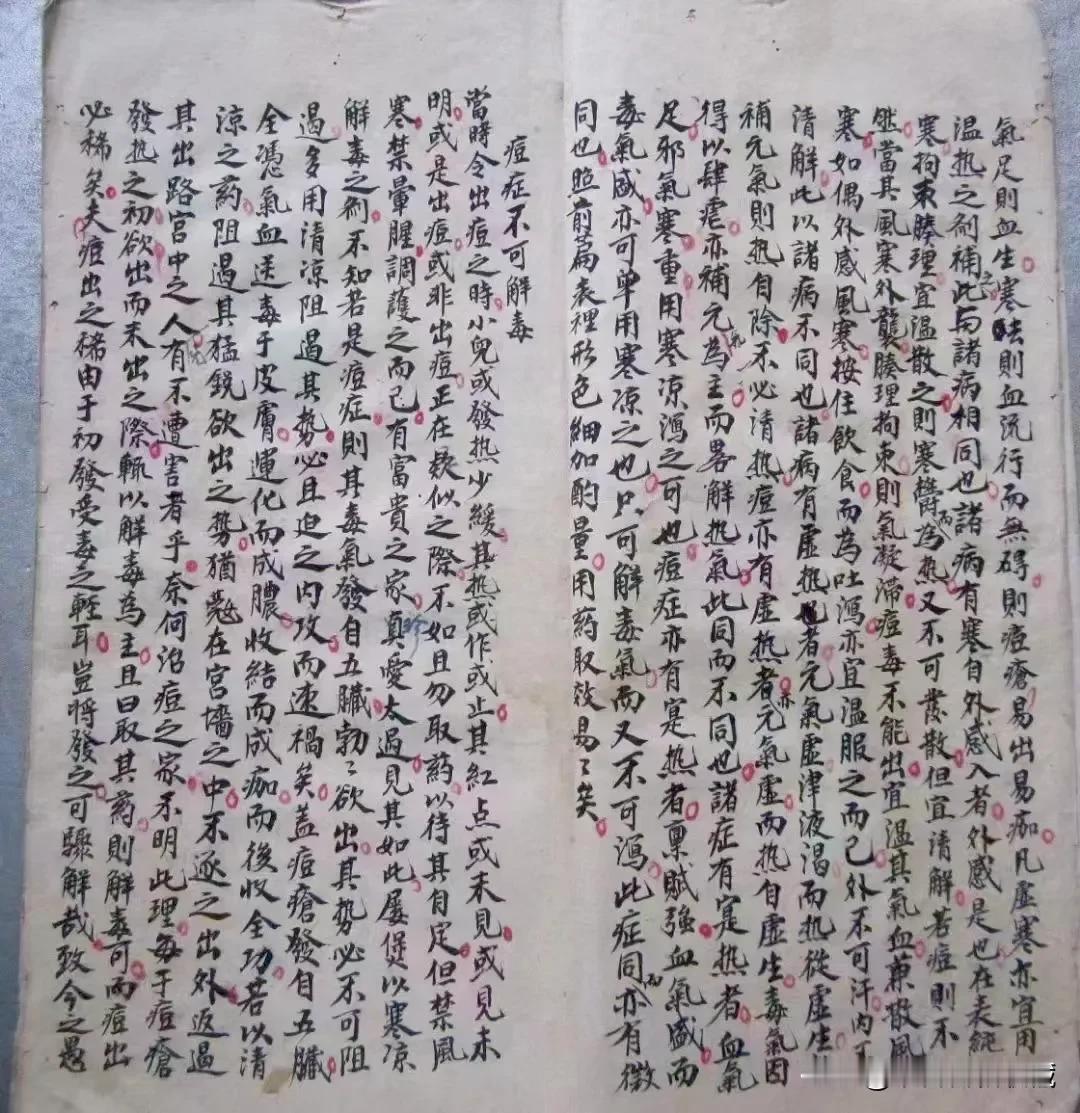 氣足則血生寒祛則血流行而無碍則痘瘡易出易痂凡虛寒亦宜用
温热之剤補之此与諸病相同也諸病有寒自外感入者外感是也在表純
寒拘束腠理宜温散之則寒欎而為热又不可發散但宜清解若痘則不
然當其風寒外襲腠理拘束則氣凝滯痘毒不能出宜温其氣血兼散風
寒如偶外感風寒按住飲食而為吐瀉亦宜温服之而已外不可汗内不
清解此以諸病不同也諸病有虛热也者元氣虛津液渴而热從虛生
補元氣則热自除不必清热痘亦有虛热者元氣虛而热自虛生毒氣因
得以肆虐亦補元為主而畧解热氣此同而不同也諸症有寔热者血氣
足邪氣寒重用寒凉瀉之可也痘症亦有寔热者稟賦强血氣盛而
毒氣盛亦可单用寒凉之也只可解毒氣而又不可瀉此症同而亦有微
同也照前篇表裡形色細加酌量用药取效易〻矣
痘症不可解毒
當時令出痘之時小兒或發热少緩其热或作或止其紅点或未見或見未
明或是出痘或非出痘正在疑似之際不如且勿取药以待其自定但禁風
寒禁暈腥調護之而已有富貴之家真愛太過見其如此屢煲以寒凉
解毒之剤不知若是痘症則其毒氣發自五臟勃〻欲出其勢必不可阻
遏多用清凉阻遏其势必且迫之内攻而速禍矣盖痘瘡發自五臟
全憑氣血送毒于皮膚運化而成膿收結而成痂而後收全功若以清
凉之药阻遏其猛銳欲出之势猶兇在宮墻之中不逐之出外返遏
其出路宮中之人有不遭害者乎奈何治痘之家不明此理每于痘瘡
發热之初欲出而未出之際輒以解毒為主且曰取其药則解毒可而痘出
必稀矣夫痘出之稀由于初發受毒之輕耳豈將發之可驟解哉致令之愚